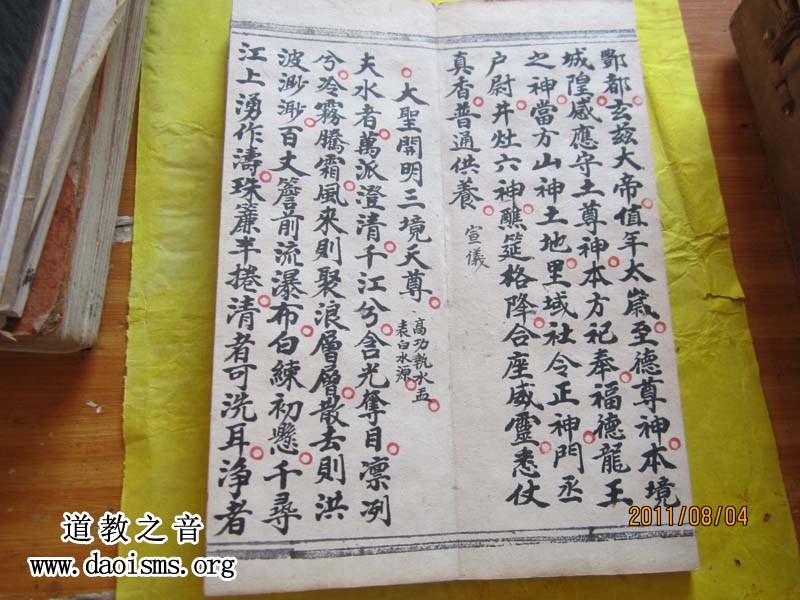 酆都玄玆大帝值年太歲至德尊神本境
城隍感應守土尊神本方祀奉福德龍王
之神當方山神土地里域社令正神門丞
户尉井灶六神醮筵格降合座威靈悉仗
真香普通供養 宣儀
大聖開明三境天尊 高功執水盂
表白水源
夫水者萬派澄清千江兮含光奪目凛冽
兮冷霧騰霜風來則聚浪層層散去則洪
波渺渺百丈簷前流瀑布白練初懸千尋
江上湧作濤珠簾半捲清者可洗耳淨者
2011/08/04
道教之音
www.daoisms.org